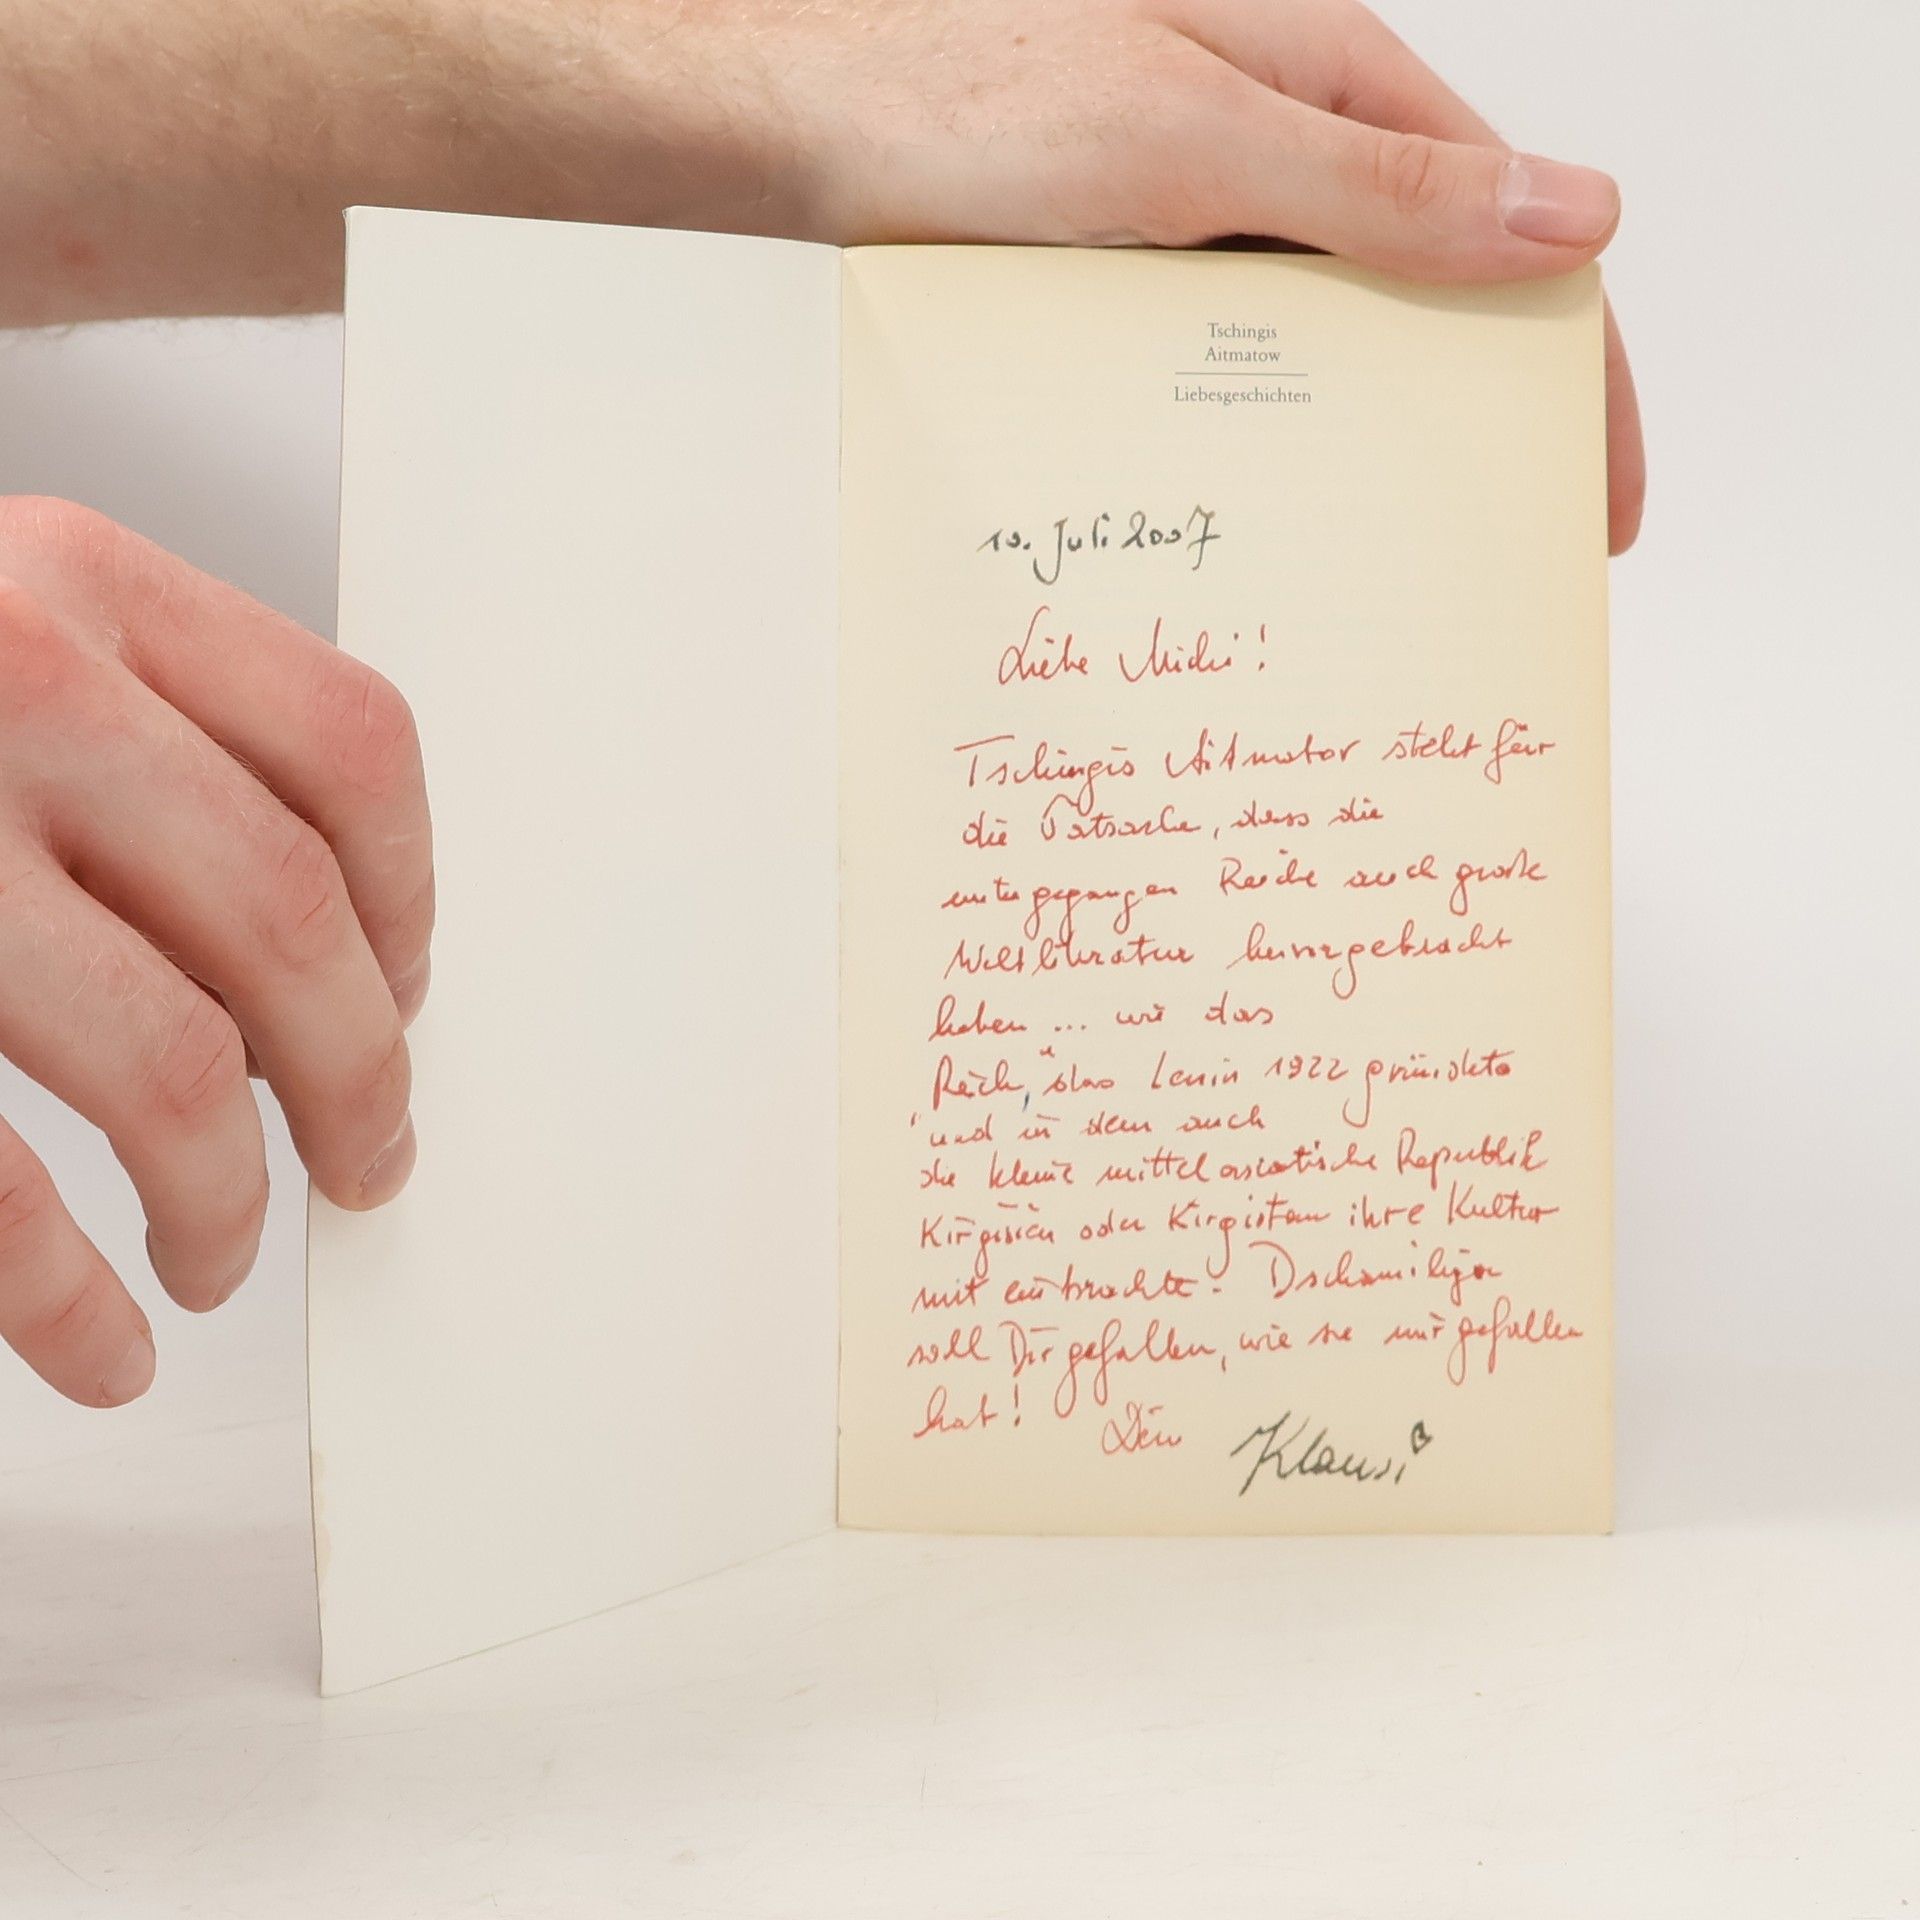 Tschingis
Aitmatow
Liebesgeschichten
10. Juli 2007
Liebe Michi!
Tschingis Aitmatov steht für
die Tatsache, dass die
untergegangen Reiche auch große
Weltliteratur hervorgebracht
haben ... wie das
Reich, das Lenin 1922 gründete
"und in dem auch
die kleine mittelasiatische Republik
Kirgisien oder Kirgistan ihre Kultur
mit einbrachte. Dschamilija
soll Dir gefallen, wie sie mir gefallen
hat! Dein Klausi